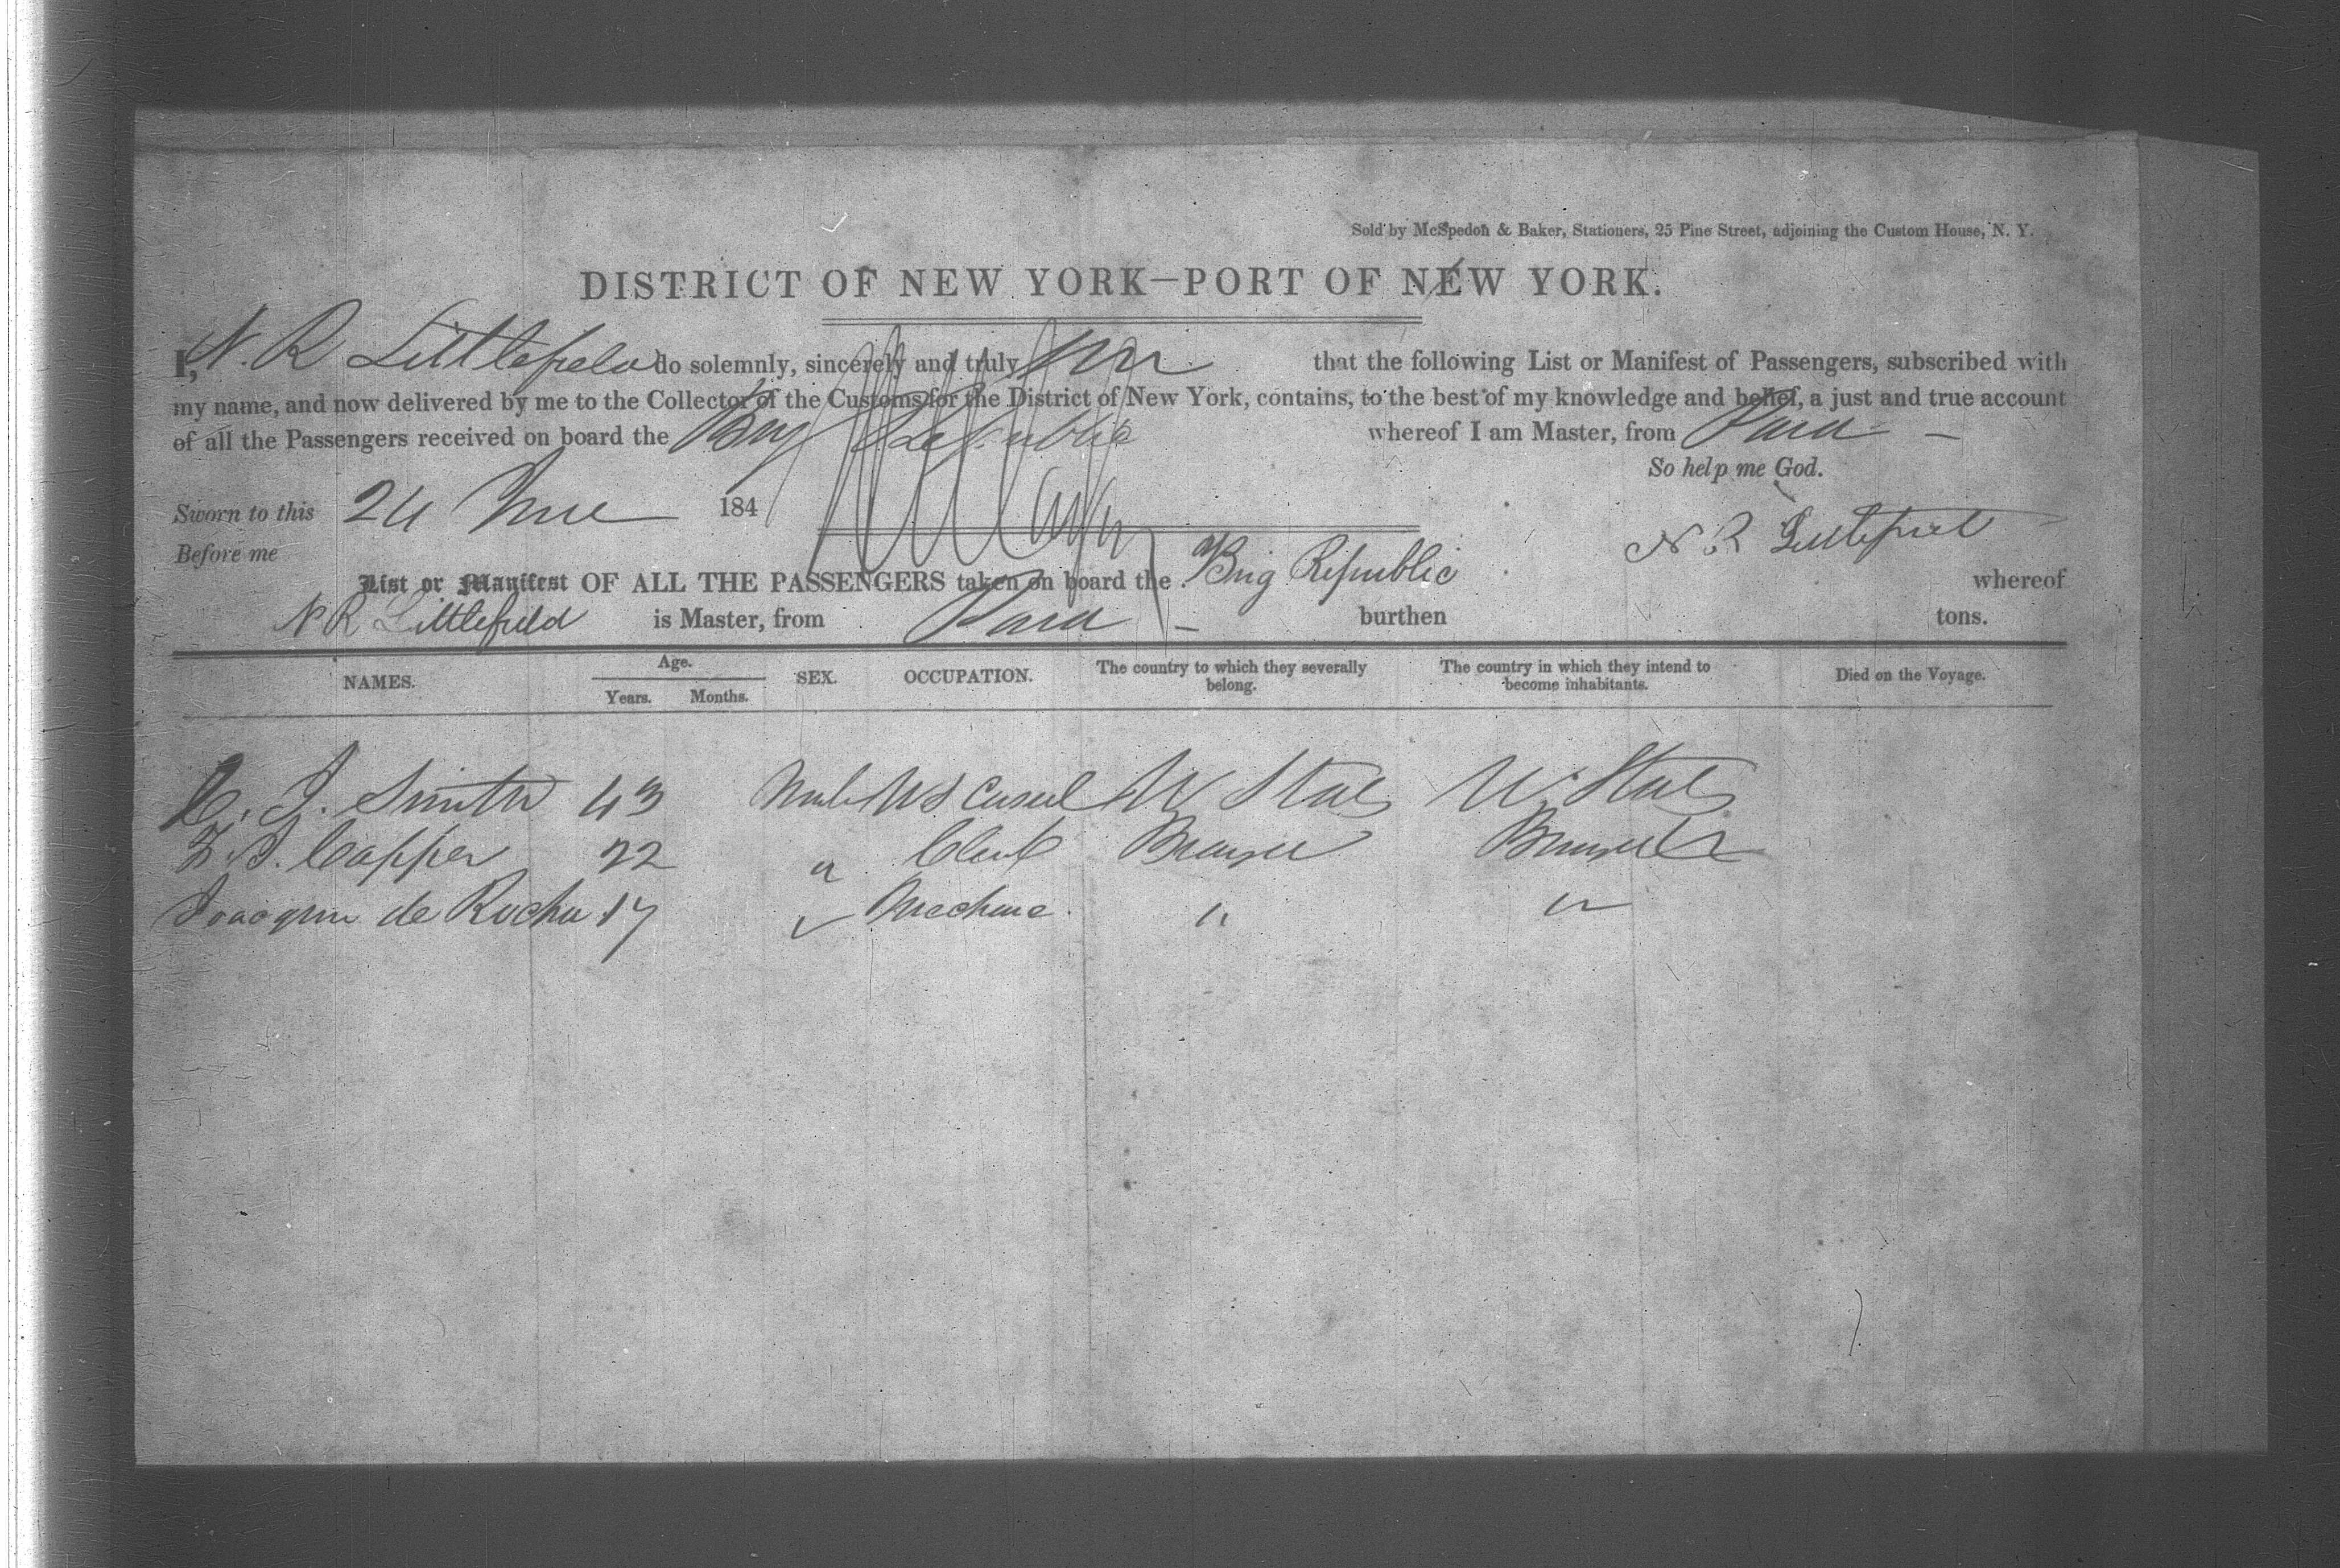 Sold by McSpedon & Baker, Stationers, 25 Pine Street, adjoining the Custom House, N. Y.
DISTRICT OF NEW YORK—PORT OF NEW YORK.
I, N. R Littlefield do solemnly, sincerely and truly that the following List or Manifest of Passengers, subscribed with
my name, and now delivered by me to the Collector of the Customs for the District of New York, contains, to the best of my knowledge and belief, a just and true account
of all the Passengers received on board the Brig Republic whereof I am Master, from Para —
So help me God.
Sworn to this 24 184
N R Littlefield
Before me
List or Manifest OF ALL THE PASSENGERS taken on board the Brig Republic whereof
N R Littlefield is Master, from Para — burthen tons.
NAMES. Age. Years. Months. SEX. OCCUPATION. The country to which they severally belong. The country in which they intend to become inhabitants. Died on the Voyage.
C. J. Smith 43 Male U S Consul U States U States
Capper 22 " Clerk
Joaquin de Rocha 17 " " "